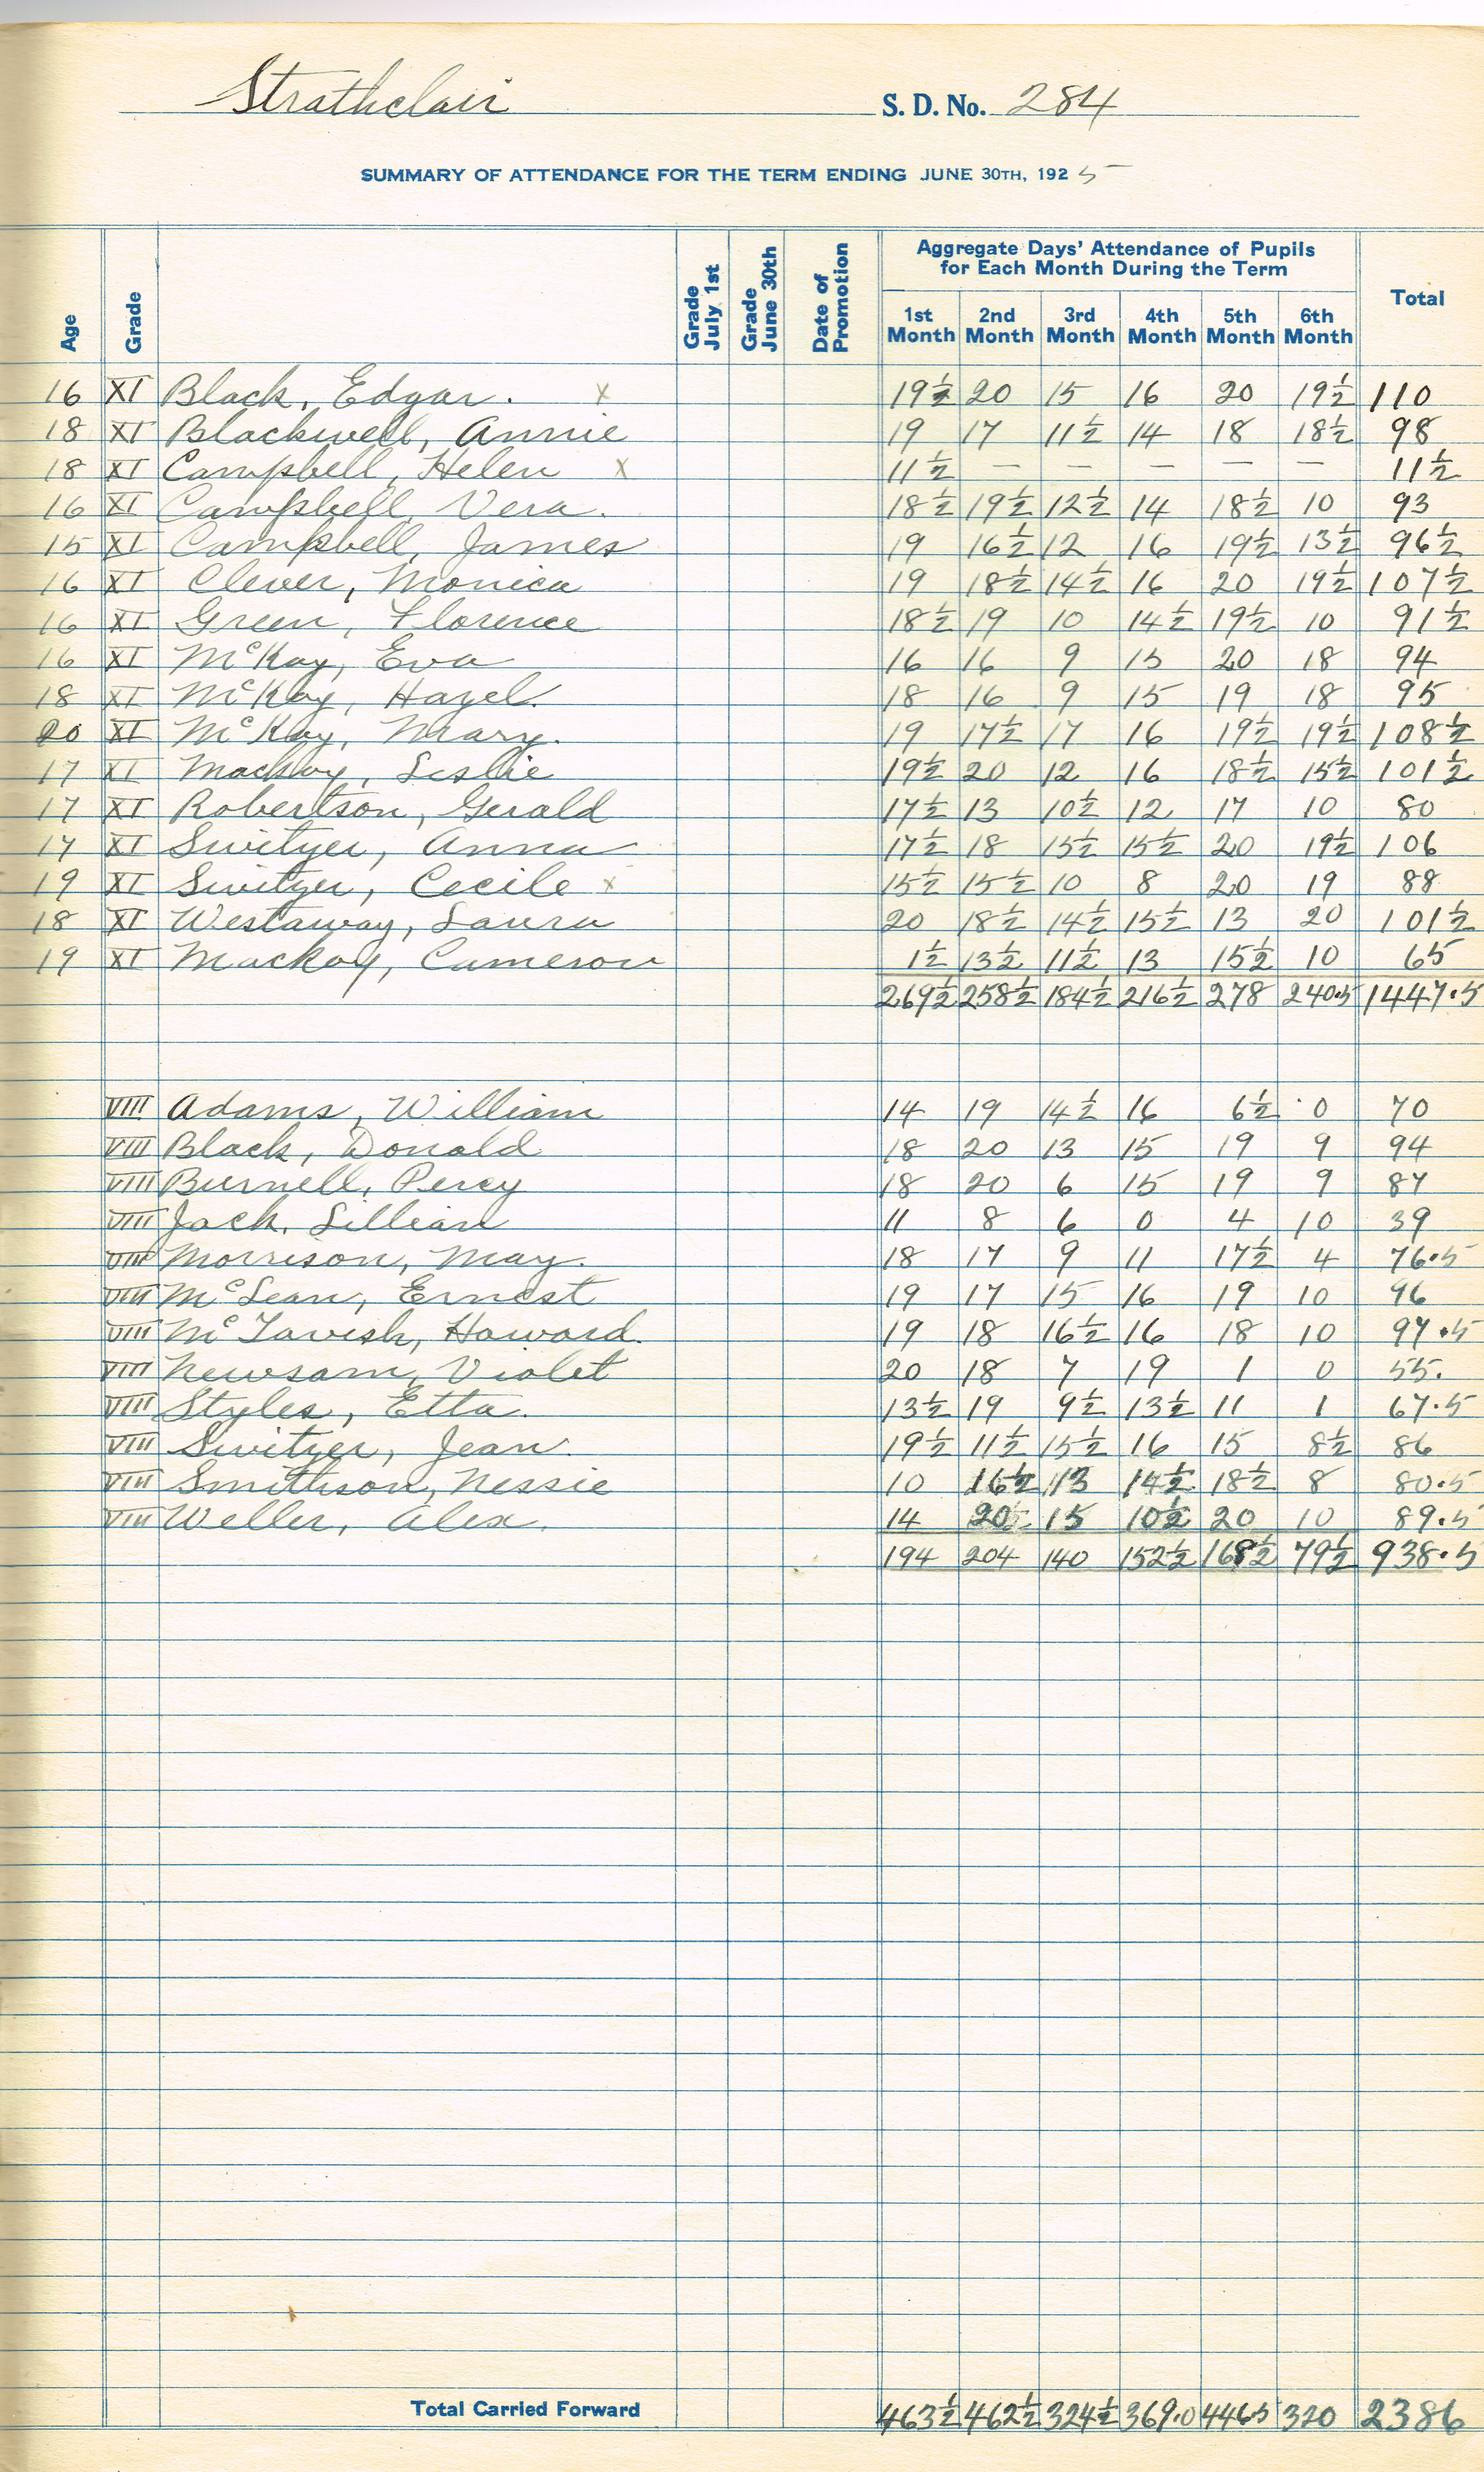 Strathclair S. D. No. 284
SUMMARY OF ATTENDANCE FOR THE TERM ENDING JUNE 30TH, 1925
Age Grade Grade July 1st Grade June 30th Date of Promotion Aggregate Days' Attendance of Pupils for Each Month During the Term Total
1st Month 2nd Month 3rd Month 4th Month 5th Month 6th Month
16 XI Black, Edgar. x 19½ 20 15 16 20 19½ 110
18 XI Blackwell, Annie 19 17 11½ 14 18 18½ 98
18 XI Campbell, Helen x 11½ — — — — — 11½
16 XI Campbell, Vera. 18½ 19½ 12½ 14 18½ 10 93
15 XI Campbell, James 19 16½ 12 16 19½ 13½ 96½
16 XI Clever, Monica 19 18½ 14½ 16 20 19½ 107½
16 XI Green, Florence 18½ 19 10 14½ 19½ 10 91½
16 XI McKay, Eva 16 16 9 15 20 18 94
18 XI McKay, Hazel. 18 16 9 15 19 18 95
20 XI McKay, Mary. 19 17½ 17 16 19½ 19½ 108½
17 XI Mackay, Leslie 19½ 20 12 16 18½ 15½ 101½
17 XI Robertson, Gerald 17½ 13 10½ 12 17 10 80
17 XI Switzer, Anna 17½ 18 15½ 15½ 20 19½ 106
19 XI Switzer, Cecile x 15½ 15½ 10 8 20 19 88
18 XI Westaway, Laura 20 18½ 14½ 15½ 13 20 101½
19 XI Mackay, Cameron 1½ 13½ 11½ 13 15½ 10 65
269½ 258½ 184½ 216½ 278 240.5 1447.5
VIII Adams, William 14 19 14½ 16 6½ 0 70
VIII Black, Donald 18 20 13 15 19 9 94
VIII Burnell, Percy 18 20 6 15 19 9 87
VIII Jack, Lillian 11 8 6 0 4 10 39
VIII Morrison, May. 18 17 9 11 17½ 4 76.5
VIII McLean, Ernest 19 17 15 16 19 10 96
VIII McTavish, Howard. 19 18 16½ 16 18 10 97.5
VIII Newsam, Violet 20 18 7 19 1 0 55.
VIII Styles, Etta. 13½ 19 9½ 13½ 11 1 67.5
VIII Switzer, Jean. 19½ 11½ 15½ 16 15 8½ 86
VIII Smithson, Nessie 10 16½ 13 14½ 18½ 8 80.5
VIII Weller, Alex. 14 20 15 10½ 20 10 89.5
194 204 140 152½ 168½ 79½ 938.5
Total Carried Forward 463½ 462½ 324½ 369.0 446.5 320 2386